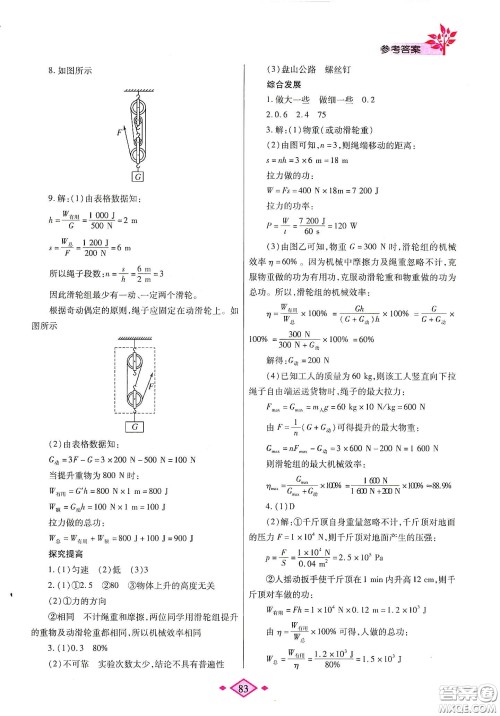 参考答案
8.如图所示
F
G
9.解:(1)由表格数据知:
h=W有用/G=1 000 J/500 N=2 m
s=W总/F=1 200 J/200 N=6 m
所以绳子段数:n=s/h=6 m/2 m=3
因此滑轮组最少有一动、一定两个滑轮。
根据奇动偶定的原则,绳子应固定在动滑轮上。如
图所示
F
G
(2)由表格数据知:
G动=3F-G=3×200 N-500 N=100 N
当提升重物为800 N时:
W有用=G′h=800 N×1 m=800 J
W额=G动h=100 N×1 m=100 J
拉力做的总功:
W总=W有用+W额=800 J+100 J=900 J
探究提高
1.(1)匀速 (2)低 (3)3
2.(1)①2.5 ②80 ③物体上升的高度无关
(2)①力的方向
②相同 不计绳重和摩擦,两位同学用滑轮组提升
的重物及动滑轮重都相同,所以机械效率相同
3.(1)0.3 80%
(2)不可靠 实验次数太少,结论不具有普遍性
(3)盘山公路 螺丝钉
综合发展
1.做大一些 做细一些 0.2
2.0.6 2.4 75
3.解:(1)物重(或动滑轮重)
(2)由图可知,n=3,则绳端移动的距离:
s=nh=3×6 m=18 m
拉力做的功:
W=Fs=400 N×18m=7 200 J
拉力的功率:
P=W/t=7 200 J/60 s=120 W
(3)由图乙可知,物重G=300 N时,滑轮组的机械
效率η=60%。因为机械中摩擦力及绳重忽略不计,克
服物重做的功为有用功,克服动滑轮重和物重做的功为
总功。所以,滑轮组的机械效率:
η=W有用/W总×100%=Gh/(G+G动)h×100%=G/G+G动×
100%=300 N/300 N+G动×100%=60%
解得:G动=200 N
(4)已知工人的质量为60 kg,则该工人竖直向下拉
绳子自由端运送货物时,绳子的最大拉力:
Fmax=Gmax=m人g=60 kg×10 N/kg=600 N
由F=1/n(G+G动)可得提升的最大物重:
Gmax=nF-Gmax=3×600 N-200 N=1 600 N
则滑轮组的最大机械效率:
ηmax=Gmax/Gmax+G动×100%=1 600 N/1 600 N+200 N×100%≈88.9%
4.(1)D
(2)解:①千斤顶自身重量忽略不计,千斤顶对地面
的压力F=1×10⁴ N,则千斤顶对地面产生的压强:
p=F/S=1×10⁴ N/0.04 m²=2.5×10⁵ Pa
②人摇动扳手使千斤顶在1 min内升高12 cm,则千
斤顶对车做的功:
W有用=Fh=1×10⁴ N×0.12 m=1.2×10³ J
由η=W有用/W总×100%可得,人做的总功:
W总=W有用/η=1.2×10³ J/80%=1.5×10³ J
83